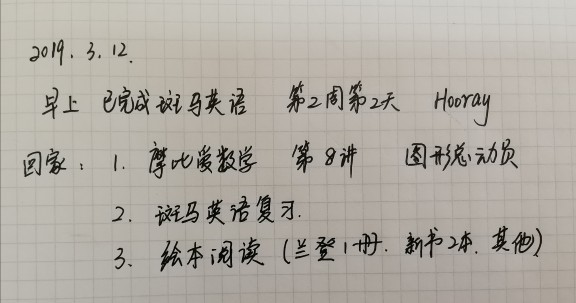 2019. 3. 12.
早上 已完成斑马英语 第2周第2天 Hooray
回家: 1. 摩比爱数学 第8讲 图形总动员
2. 斑马英语复习.
3. 绘本阅读 (兰登1册. 新书2本. 其他)